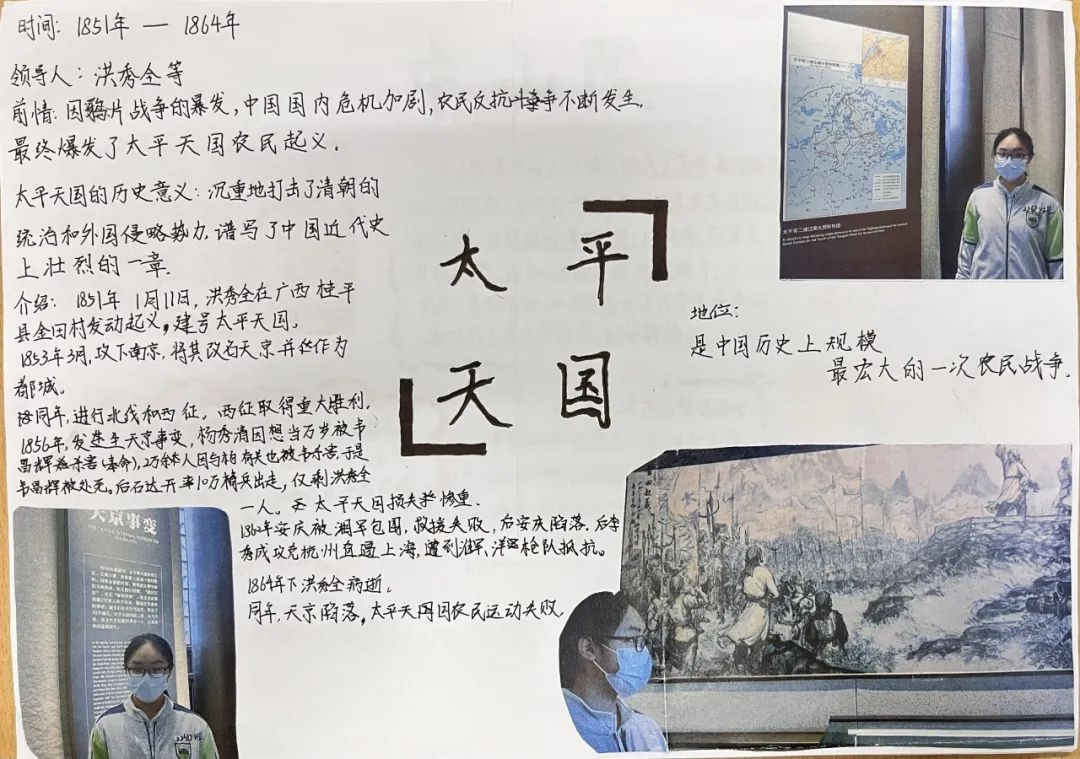 时间: 1851年 — 1864年
领导人: 洪秀全等
前情: 因鸦片战争的暴发,中国国内危机加剧,农民反抗斗争不断发生.
最终爆发了太平天国农民起义.
太平天国的历史意义: 沉重地打击了清朝的
统治和外国侵略势力,谱写了中国近代史
上壮烈的一章.
介绍: 1851年 1月11日,洪秀全在广西桂平
县金田村发动起义,建号太平天国。
1853年3月,攻下南京,将其改名天京并作为
都城。
同年,进行北伐和西征,西征取得重大胜利.
1856年,发生天京事变,杨秀清因想当万岁被韦
昌辉杀害(奉命),2万余人因与杨有关也被韦杀害于是
韦昌辉被处死。后石达开率10万精兵出走,仅剩洪秀全
一人。太平天国损失惨重.
1862年安庆被湘军包围,救援失败,后安庆陷落.后李
秀成攻克杭州直逼上海,遭到淮军、洋枪队抵抗。
1864年下洪秀全病逝.
同年,天京陷落,太平天国农民运动失败.
太平
天国
地位:
是中国历史上规模
最宏大的一次农民战争.
太平军二破江南大营形势图
天京事变